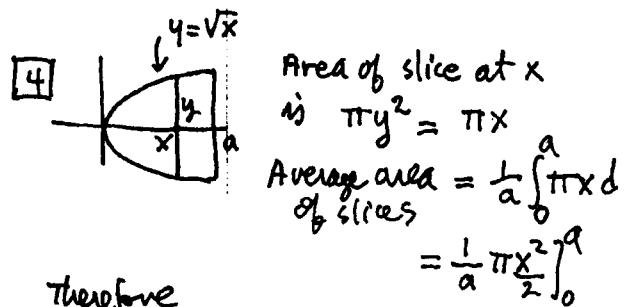 4
y = √x
y
x
a
Area of slice at x
is πy² = πx
Average area of slices = 1/a ∫₀ᵃ πx d
= 1/a πx²/2 ]₀ᵃ
Therefore